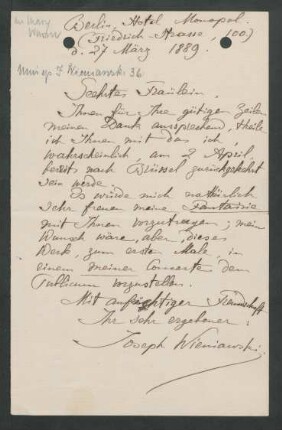 Berlin, Hotel Monopol.
(Friedrich Strasse, 100.)
d. 27 März 1889.
Geehrtes Fräulein.
Ihnen für Ihre gütigen Zeilen
meinen Dank aussprechend, theile
ich Ihnen mit das ich
wahrscheinlich, am 2 April,
bereits nach Brüssel zurückgekehrt
sein werde.
Es würde mich natürlich
sehr freuen meine Fantaisie
mit Ihnen vorzutragen; mein
Wunsch wäre, aber, dieses
Werk, zum ersten Male in
einem meiner Concerte dem
Publicum vorzustellen.
Mit aufrichtiger Freundschaft
Ihr sehr ergebener:
Joseph Wieniawski